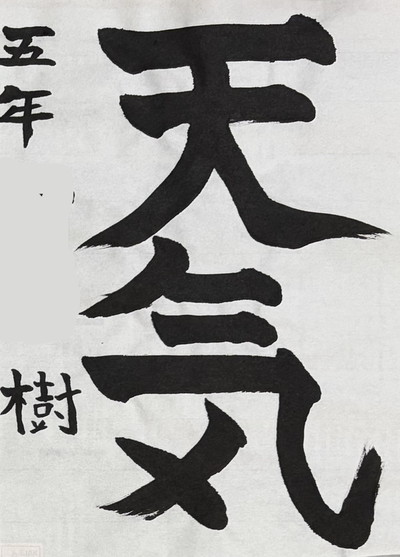 天気
五年
樹